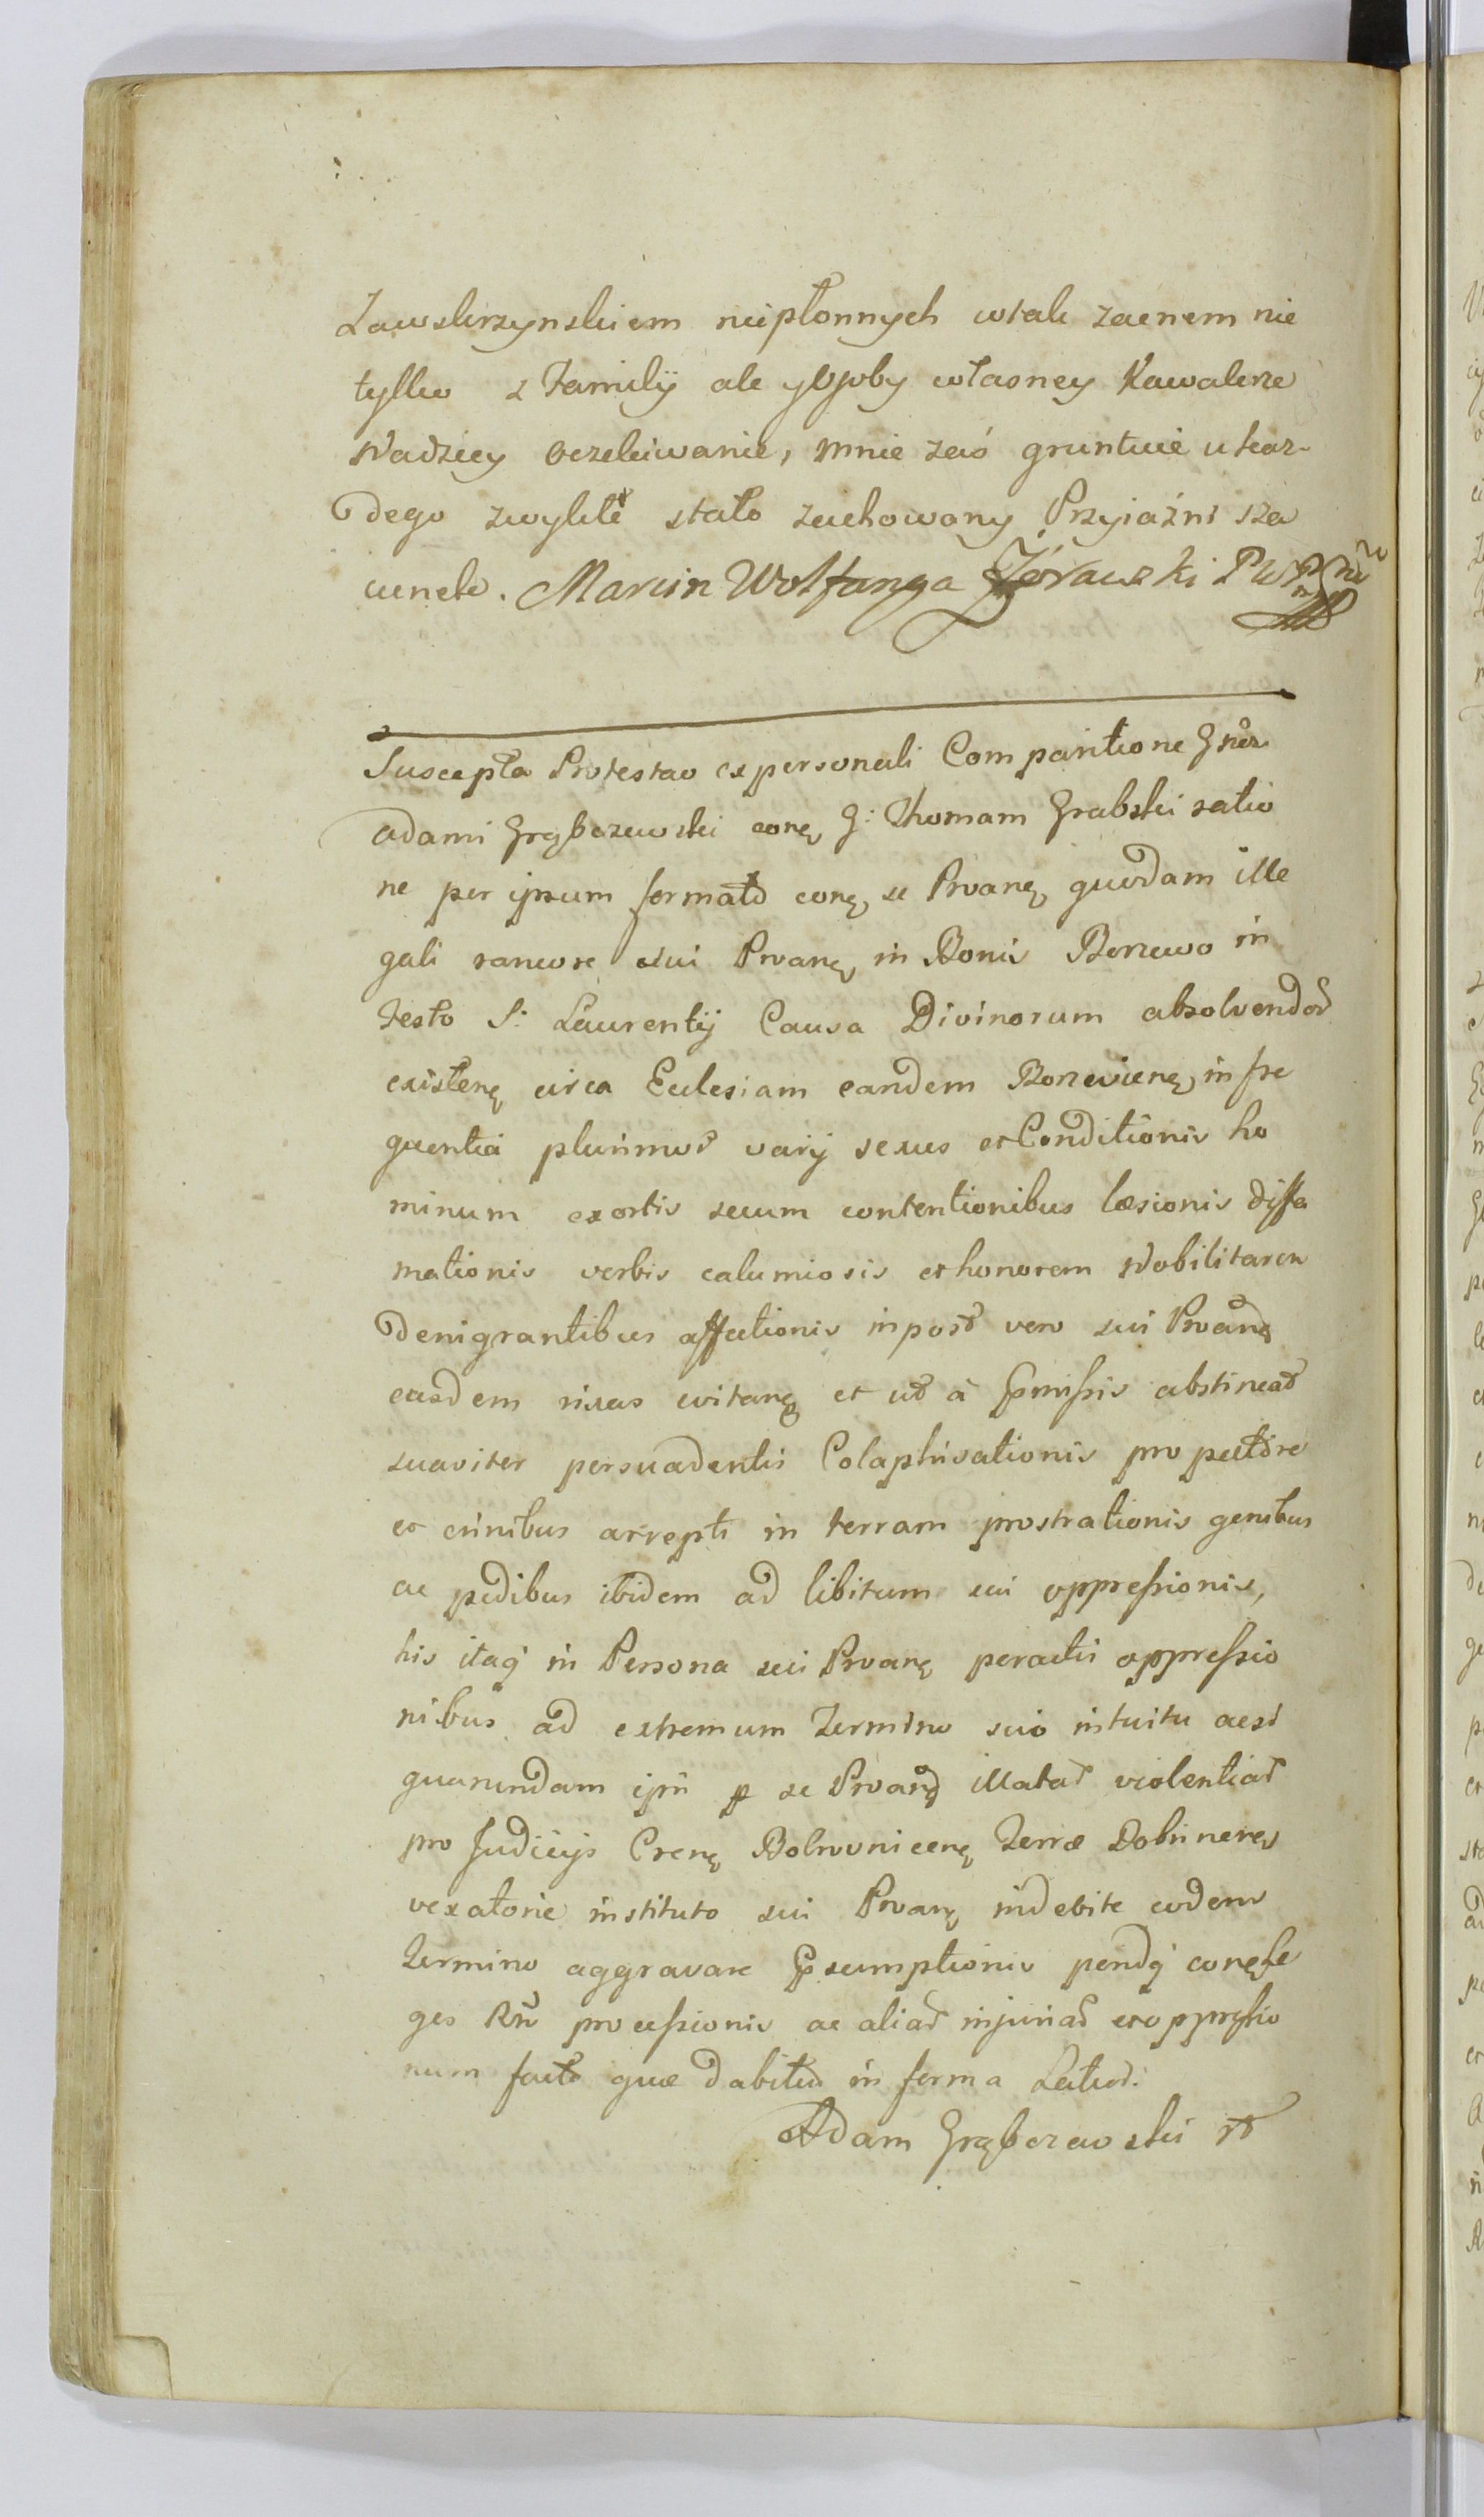 Zawskrzynskiem niepłonnych wtak zacnem nie
tylko z Familÿ ale y Osoby własney Kawalerze
Nadziey oczekiwanie, mnie zaś gruntuie u każ-
dego zwykłe stało zachowany Przyiaźni sza
cunek. Marcin Wolfanga Żórawski
Suscepta Protestao ex personali Comparitione Gner
Adami Grąbczewski conę G: Thomam Grabski ratio
ne per ipsum format conę se Proanę quodam ille
gali rancore sui Proanę in Bonis Borzewo in
Festo S: Laurentij Causa Divinorum absolvendor
existenę circa Ecclesiam eandem Borzevienę, in fre
quentia plurimor varij sexus et Conditionis ho
minum exortis secum contentionibus læsionis diffa
mationis verbis calumiosis et honorem Nobilitarem
denigrantibus affectionis in post vero sui Proanę
easdem rixas evitanę et ut à Præmissis abstineat
suaviter persuadentis Colaphisationis pro pectore
et crinibus arrepti in terram prostrationis genibus
ac pedibus ibidem ad libitum sui oppressionis,
his itaq in Persona sui Proanę peractis oppressio
nibus ad extremum Termino suo intuitu acsi
quarundam ipsi p se Proanę illatar violentiar
pro Judicijs Crenę Bobrovnicenę Terræ Dobrinenę
vexatorie instituto sui Proanę indebite eodem
Termino aggravare Præsumptionis pendq conę le
ges Rni processionis ac aliar injuriar et oppressio
num fact quæ dabitur in forma Latior.
Adam Grąbczewski